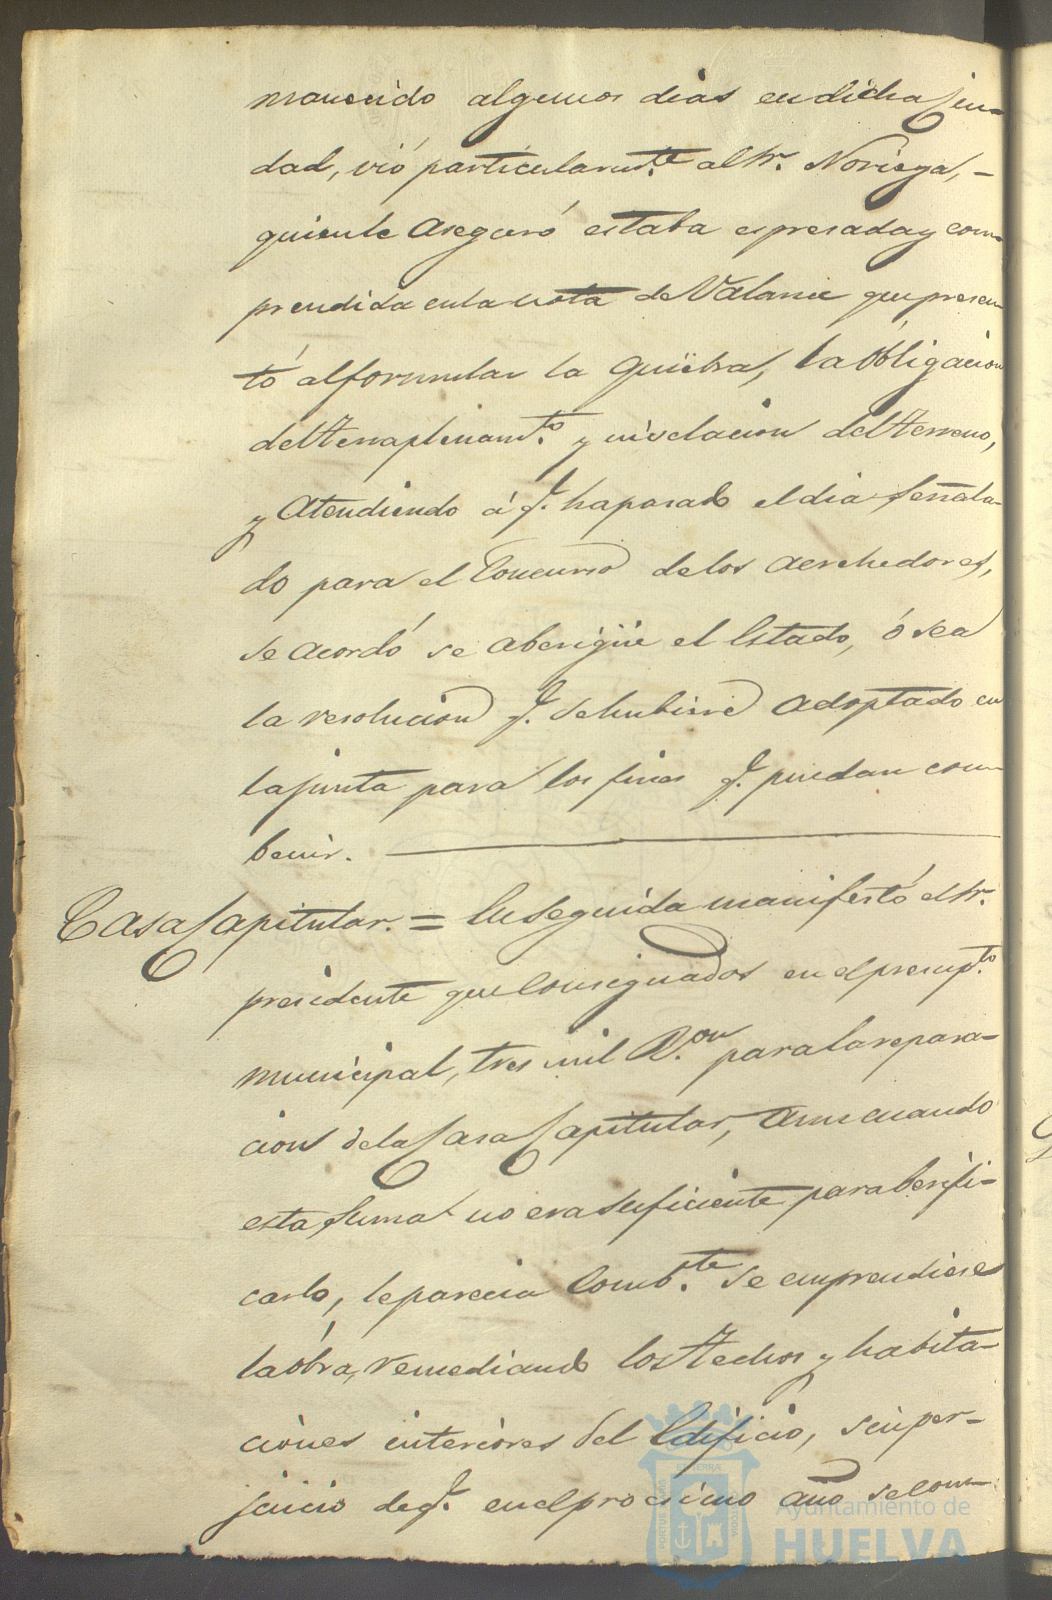 manecido algunos dias en dicha Ciu-
dad, vió particularmte. al Sr. Noriega, -
quien le aseguró estaba espresada y com-
prendida en la nota de Valance que presen-
tó al formular la quiebra, la óbligacion
del terraplenamto. y nivelacion del terreno,
y atendiendo á q. ha pasado el dia señala-
do para el Concurso de los acrehedores,
se acordó se aberigüe el Estado, ó sea
la resolucion q. se hubiere adoptado en
la junta para los fines q. puedan com-
benir.
Casa Capitular. = En seguida manifestó el Sr.
presidente que consignados en el presupto.
municipal, tres mil R.on para la repara-
cion de la Casa Capitular, aun cuando
esta suma no era suficiente para berifi-
carlo, le parecia combte. se emprendiese
la óbra, remediando los techos y habita-
ciones interiores del Edificio, sin per-
juicio de q. en el procsimo año se con-
Ayuntamiento de
HUELVA